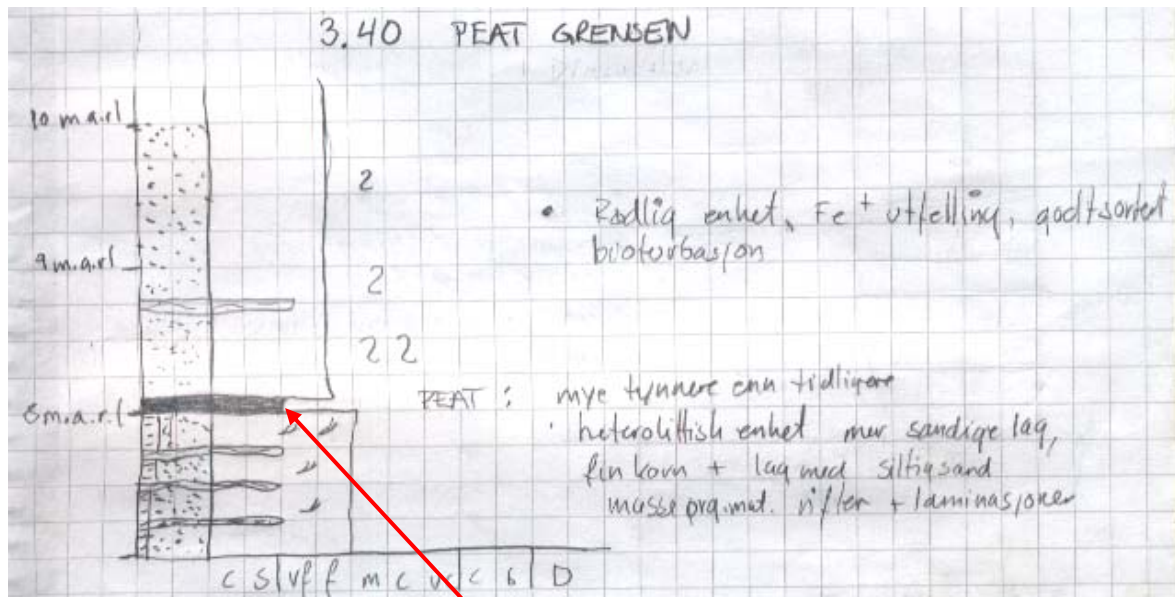 3.40 PEAT GRENSEN
10 m.a.r.l
2
• Rødlig enhet, Fe+ utfelling, godt sortert
bioturbasjon
9 m.a.r.l
2
2 2
PEAT : mye tynnere enn tidligere
8 m.a.r.l
· heterolittish enhet mer sandige lag,
fin korn + lag med siltig sand
masse org.mat. rifler + laminasjoner
C S Vf f m c vc c b D